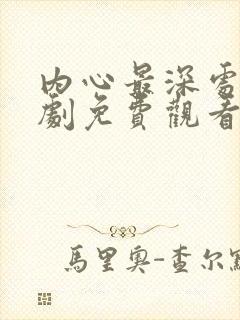 內心最深處
劇免費觀看
馬里奧-查尔